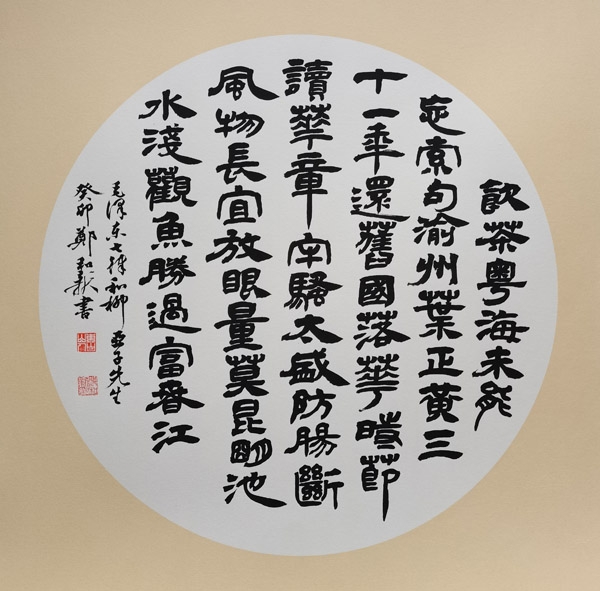 飲茶粵海未能
忘索句渝州葉正黃三
十一年還舊國落華時節
讀華章牢騷太盛防腸斷
風物長宜放眼量莫昆明池
水淺觀魚勝過富春江
毛澤東七律和柳亞子先生
癸卯鄭和書